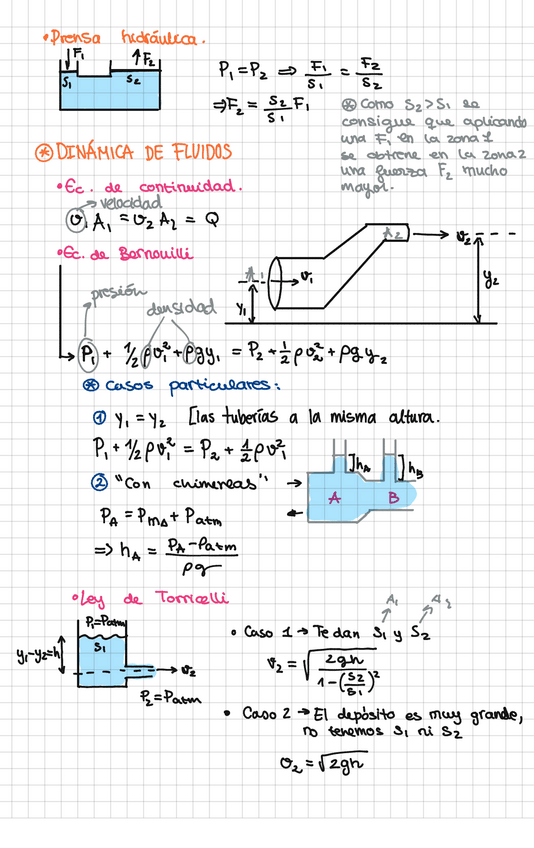 •Prensa hidráulica.
↓F₁ ↑F₂
S₁ S₂
P₁=P₂ ⇒ F₁/S₁ = F₂/S₂
⇒F₂ = S₂/S₁ F₁
⊛ Como S₂>S₁ se
consigue que aplicando
una F₁ en la zona 1
se obtiene en la zona 2
una fuerza F₂ mucho
mayor.
⊛ DINÁMICA DE FLUIDOS
•Ec. de continuidad.
→velocidad
v₁A₁ = v₂A₂ = Q
•Ec. de Bernouilli
A₁ v₁ y₁ A₂ v₂ y₂
presión
densidad
P₁ + 1/2 ρv₁² + ρgy₁ = P₂ + 1/2 ρv₂² + ρgy₂
⊛ Casos particulares:
① y₁ = y₂ [las tuberías a la misma altura.
P₁ + 1/2 ρv₁² = P₂ + 1/2 ρv₁²
② "Con chimeneas"
]hA ]hB
A B
PA = PmA + Patm
⇒ hA = PA - Patm / ρg
•Ley de Torricelli
P₁=Patm
S₁
y₁-y₂=h
v₂
P₂=Patm
A₁ A₂
• Caso 1 → Te dan S₁ y S₂
v₂ = √(2gh / 1-(S₂/S₁)²)
• Caso 2 → El depósito es muy grande,
no tenemos S₁ ni S₂
v₂ = √2gh